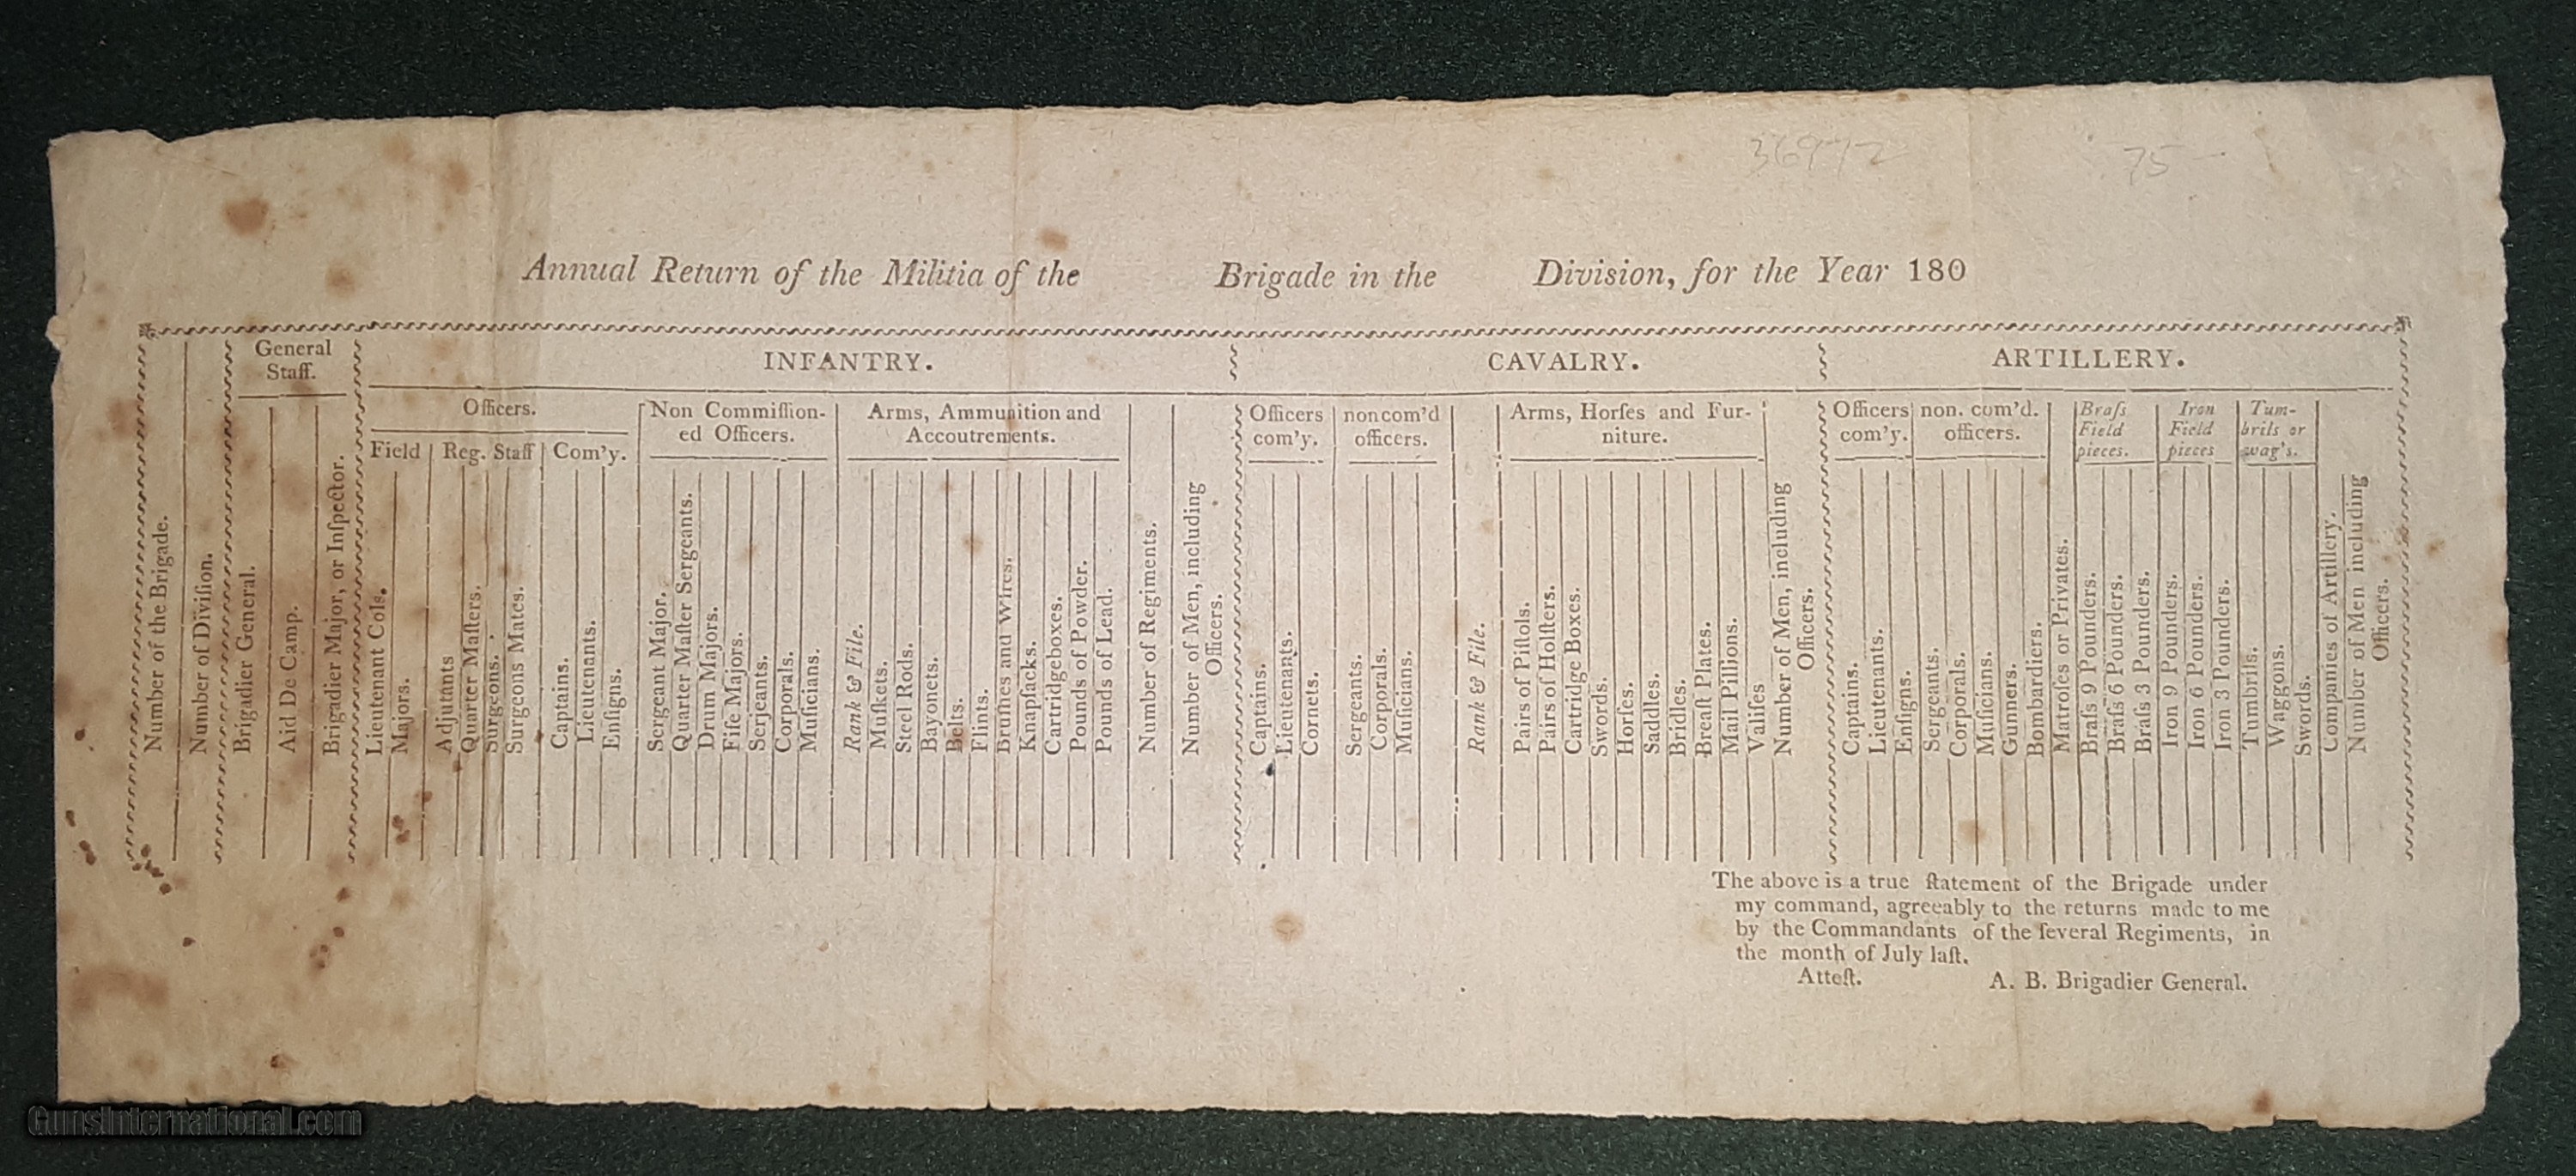 36972
75 —
Annual Return of the Militia of the Brigade in the Division, for the Year 180
Number of the Brigade.
Number of Diviſion.
General
Staff.
Brigadier General.
Aid De Camp.
Brigadier Major, or Inſpector.
INFANTRY.
Officers.
Field
Lieutenant Cols.
Majors.
Reg. Staff
Adjutants
Quarter Maſters.
Surgeons.
Surgeons Mates.
Com'y.
Captains.
Lieutenants.
Enſigns.
Non Commiſſion-
ed Officers.
Sergeant Major.
Quarter Maſter Sergeants.
Drum Majors.
Fife Majors.
Serjeants.
Corporals.
Muſicians.
Rank & File.
Arms, Ammunition and
Accoutrements.
Muſkets.
Steel Rods.
Bayonets.
Belts.
Flints.
Bruſhes and Wires.
Knapſacks.
Cartridgeboxes.
Pounds of Powder.
Pounds of Lead.
Number of Regiments.
Number of Men, including
Officers.
CAVALRY.
Officers
com'y.
Captains.
Lieutenants.
Cornets.
noncom'd
officers.
Sergeants.
Corporals.
Muſicians.
Rank & File.
Arms, Horſes and Fur-
niture.
Pairs of Piſtols.
Pairs of Holſters.
Cartridge Boxes.
Swords.
Horſes.
Saddles.
Bridles.
Breaſt Plates.
Mail Pillions.
Valiſes
Number of Men, including
Officers.
ARTILLERY.
Officers
com'y.
Captains.
Lieutenants.
Enſigns.
non. com'd.
officers.
Sergeants.
Corporals.
Muſicians.
Gunners.
Bombardiers.
Matroſes or Privates.
Braſs
Field
pieces.
Braſs 9 Pounders.
Braſs 6 Pounders.
Braſs 3 Pounders.
Iron
Field
pieces
Iron 9 Pounders.
Iron 6 Pounders.
Iron 3 Pounders.
Tum-
brils or
wag's.
Tumbrils.
Waggons.
Swords.
Companies of Artillery.
Number of Men including
Officers.
The above is a true ſtatement of the Brigade under
my command, agreeably to the returns made to me
by the Commandants of the ſeveral Regiments, in
the month of July laſt.
Atteſt. A. B. Brigadier General.
GunsInternational.com